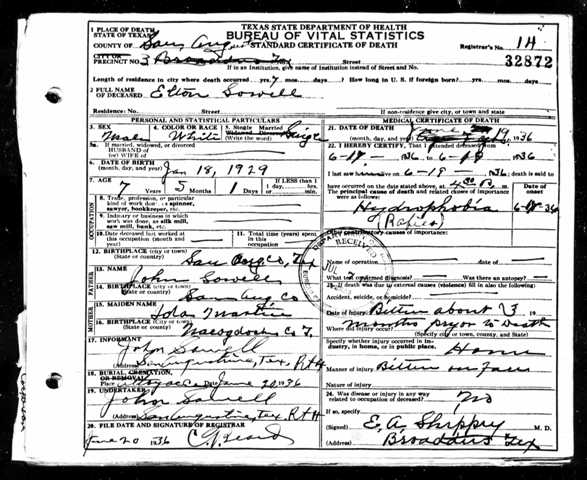 TEXAS STATE DEPARTMENT OF HEALTH
BUREAU OF VITAL STATISTICS
STANDARD CERTIFICATE OF DEATH
1 PLACE OF DEATH
STATE OF TEXAS
COUNTY OF San Aug
Registrar's No. 14
CITY OR
PRECINCT NO. 3 Broaddus Tex Street
32872
If in an Institution, give name of institution instead of Street and No.
Length of residence in city where death occurred yrs. 7 mos. days? How long in U. S. if foreign born? yrs. mos. days.
2 FULL NAME
OF DECEASED Elton Sowell
Residence: No. Street If non-residence give city, or town and state
PERSONAL AND STATISTICAL PARTICULARS
3. SEX
Male
4. COLOR OR RACE
White
5. Single Married
Widowed Divorced
(Write the word)
Single
5a. If married, widowed, or divorced
HUSBAND OF
(or) WIFE OF
6. DATE OF BIRTH
(month, day, and year) Jan 18, 1929
7. AGE
7 Years 5 Months 1 Days
If LESS than 1
day, hrs.
or min.
OCCUPATION
8. Trade, profession, or particular
kind of work done as spinner,
sawyer, bookkeeper, etc.
9. Industry or business in which
work was done, as silk mill,
saw mill, bank, etc.
10. Date deceased last worked at
this occupation (month and
year)
11. Total time (years)
spent in this
occupation
12. BIRTHPLACE (city or town)
(State or country) San Aug Co, Tex
FATHER
13. NAME
John Sowell
14. BIRTHPLACE (city or town)
(State or country) San Aug Co
MOTHER
15. MAIDEN NAME
Martin
16. BIRTHPLACE (city or town)
(State or country) Nacogdoches Co T.
17. INFORMANT
John Sowell
(Address) San Augustine, Tex, Rt 4
18. BURIAL, CREMATION,
OR REMOVAL
Place Date June 20 1936
19. UNDERTAKER
John Sowell
(Address) San Augustine, Tex Rt 4
20. FILE DATE AND SIGNATURE OF REGISTRAR
June 20 1936
MEDICAL CERTIFICATE OF DEATH
21. DATE OF DEATH
(month, day, and year) June 19, 1936
22. I HEREBY CERTIFY, That I attended deceased from
6-19- 1936 to 6-19 1936
I last saw alive on 6-19- 1936; death is said to
have occurred on the date stated above, at 4:00 P. m.
The principal cause of death and related causes of importance
were as follows:
Date of
onset
Hydrophobia
(Rabies)
Other contributory causes of importance:
RECEIVED
JUL
Name of operation
What test confirmed diagnosis? Was there an autopsy?
23. If death was due to external causes (violence) fill in also the following:
Accident, suicide, or homicide?
Date of injury Bitten about 3
months pryor to death
Where did injury occur?
(Specify city or town, county, and State)
Specify whether injury occurred in industry, in home, or in public place. Home
Manner of injury Bitten on face
Nature of injury
24. Was disease or injury in any way
related to occupation of deceased? No
If so, specify
(Signed) E. A. M. D.
(Address) Broaddus Tex